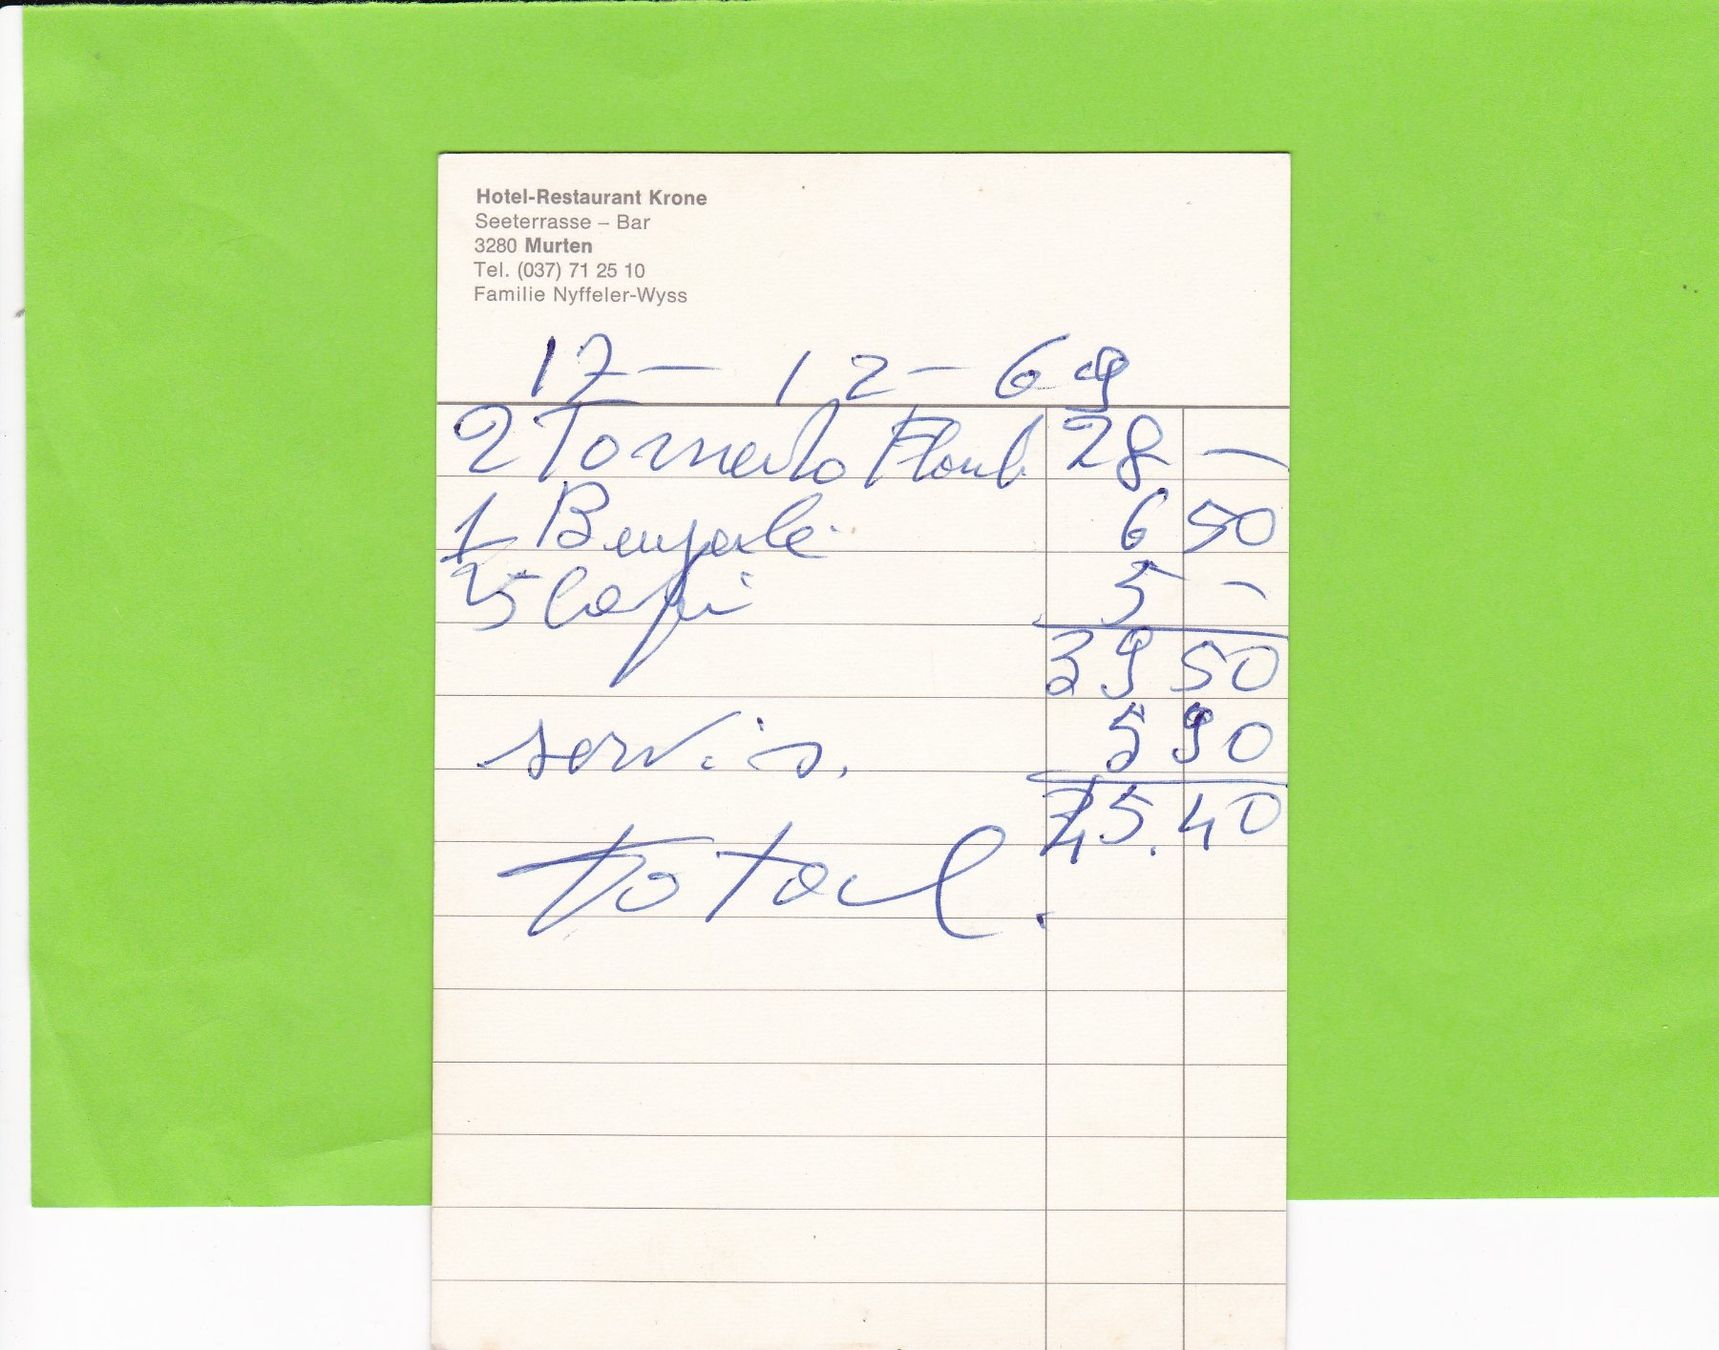 Hotel-Restaurant Krone
Seeterrasse – Bar
3280 Murten
Tel. (037) 71 25 10
Familie Nyffeler-Wyss
17 – 12 – 69
2 28 –
1 6 50
5 –
39 50
servis. 5 90
45.40
total.